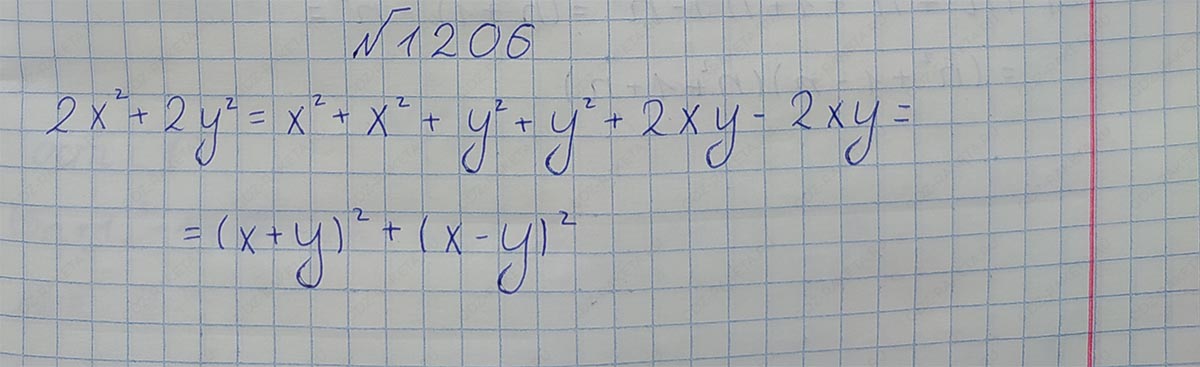 №1206
2x² + 2y² = x² + x² + y² + y² + 2xy - 2xy =
= (x + y)² + (x - y)²